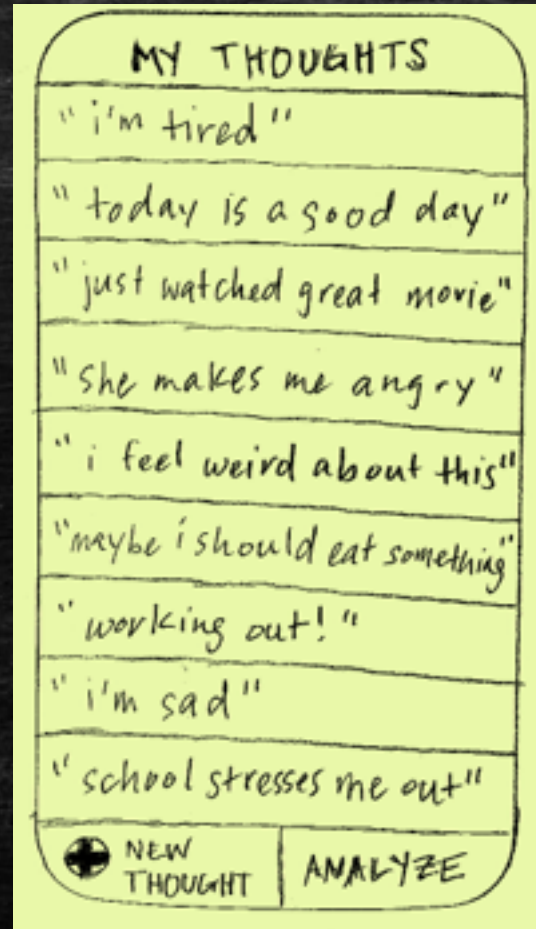 MY THOUGHTS
"i'm tired"
"today is a good day"
"just watched great movie"
"she makes me angry"
"i feel weird about this"
"maybe i should eat something"
"working out!"
"i'm sad"
"school stresses me out"
NEW
THOUGHT
ANALYZE